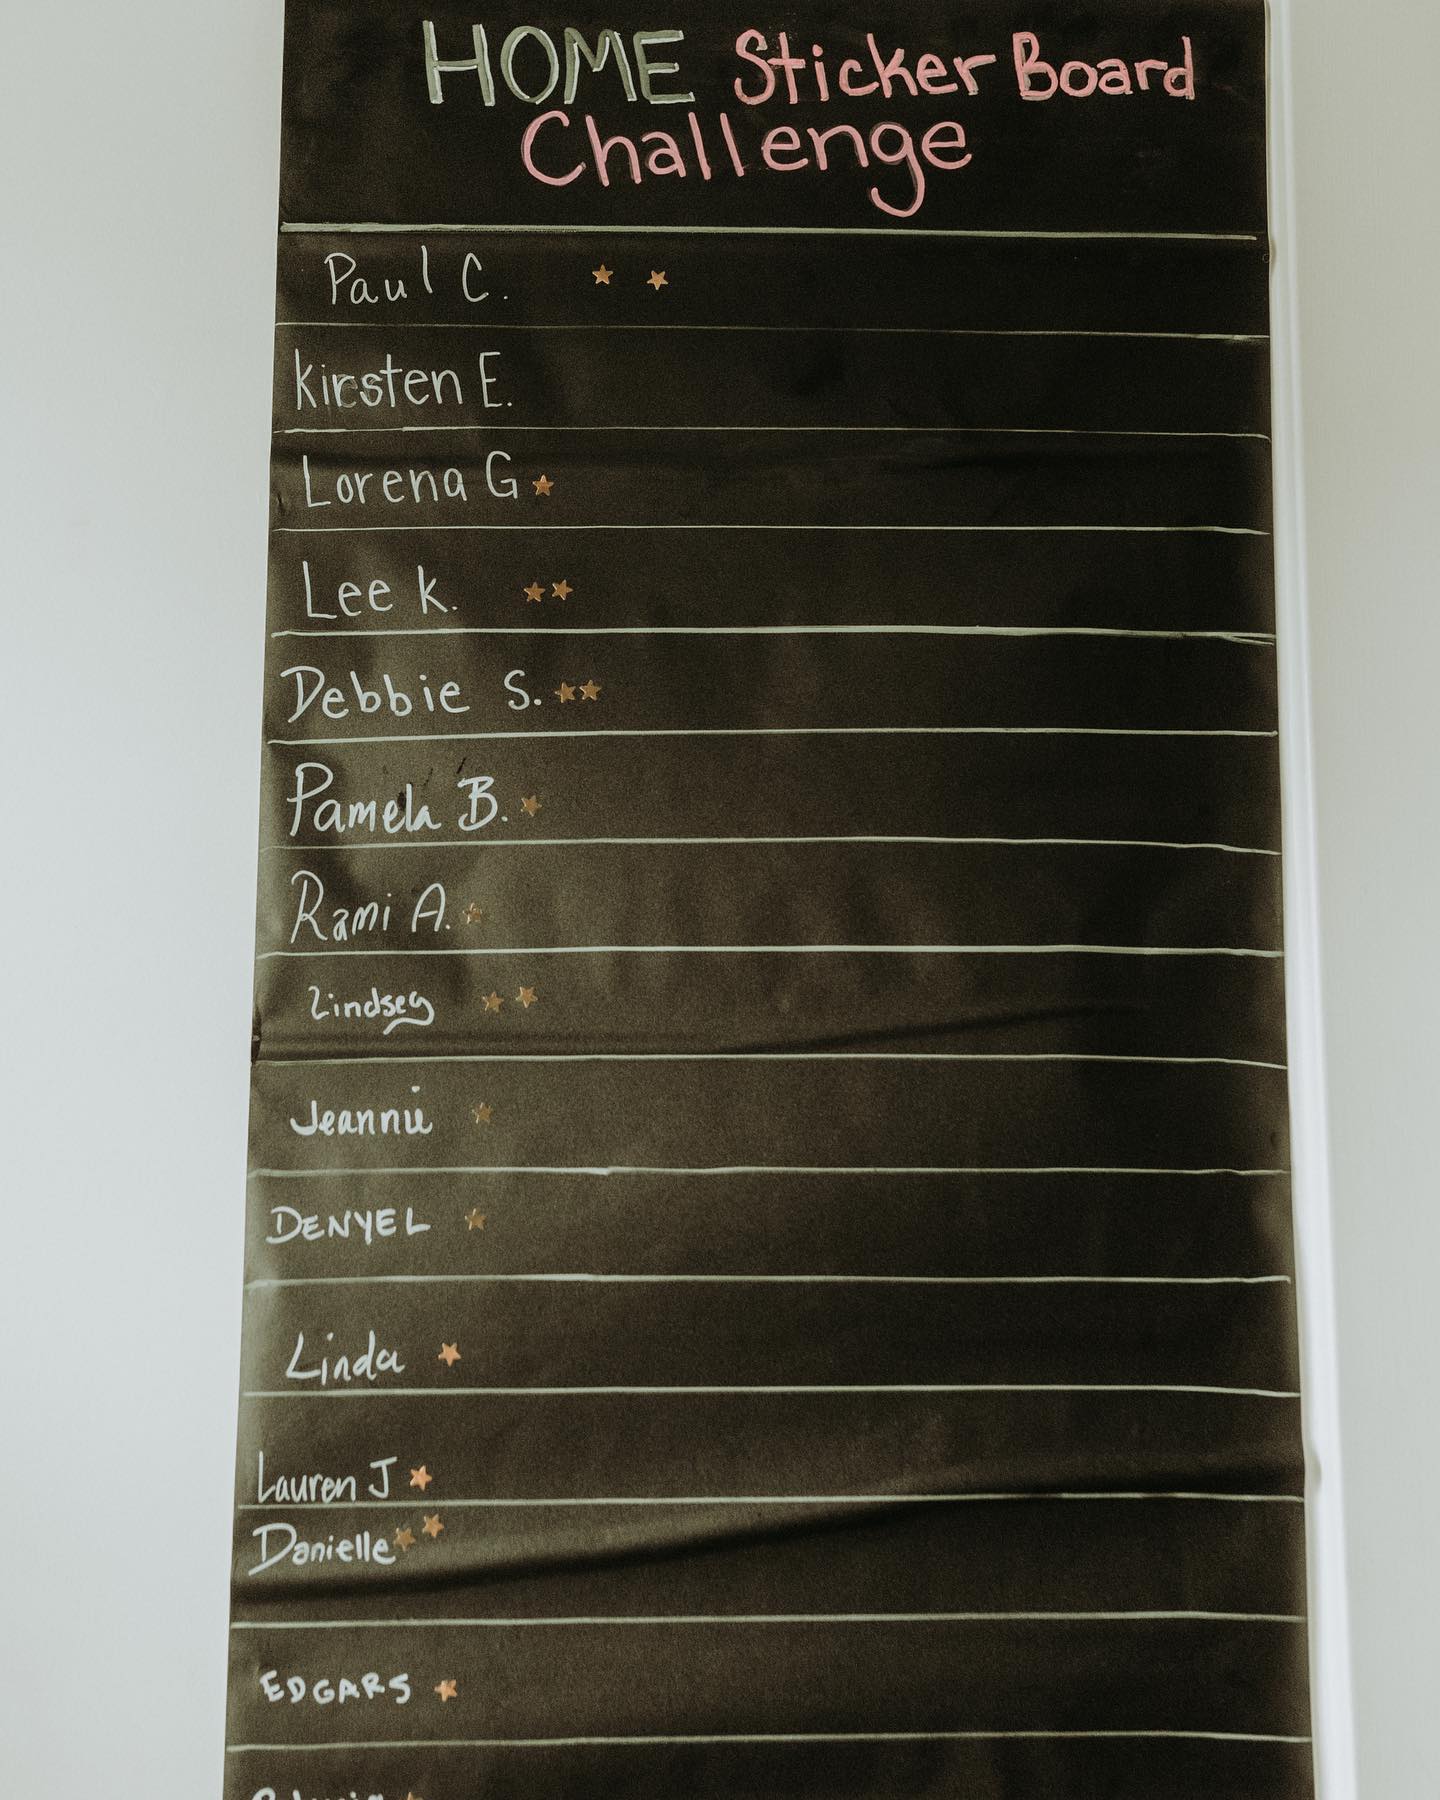 HOME Sticker Board
Challenge
Paul C.
Kirsten E.
Lorena G
Lee K.
Debbie S.
Pamela B.
Rami A.
Lindsey
Jeannie
DENYEL
Linda
Lauren J
Danielle
EDGARS